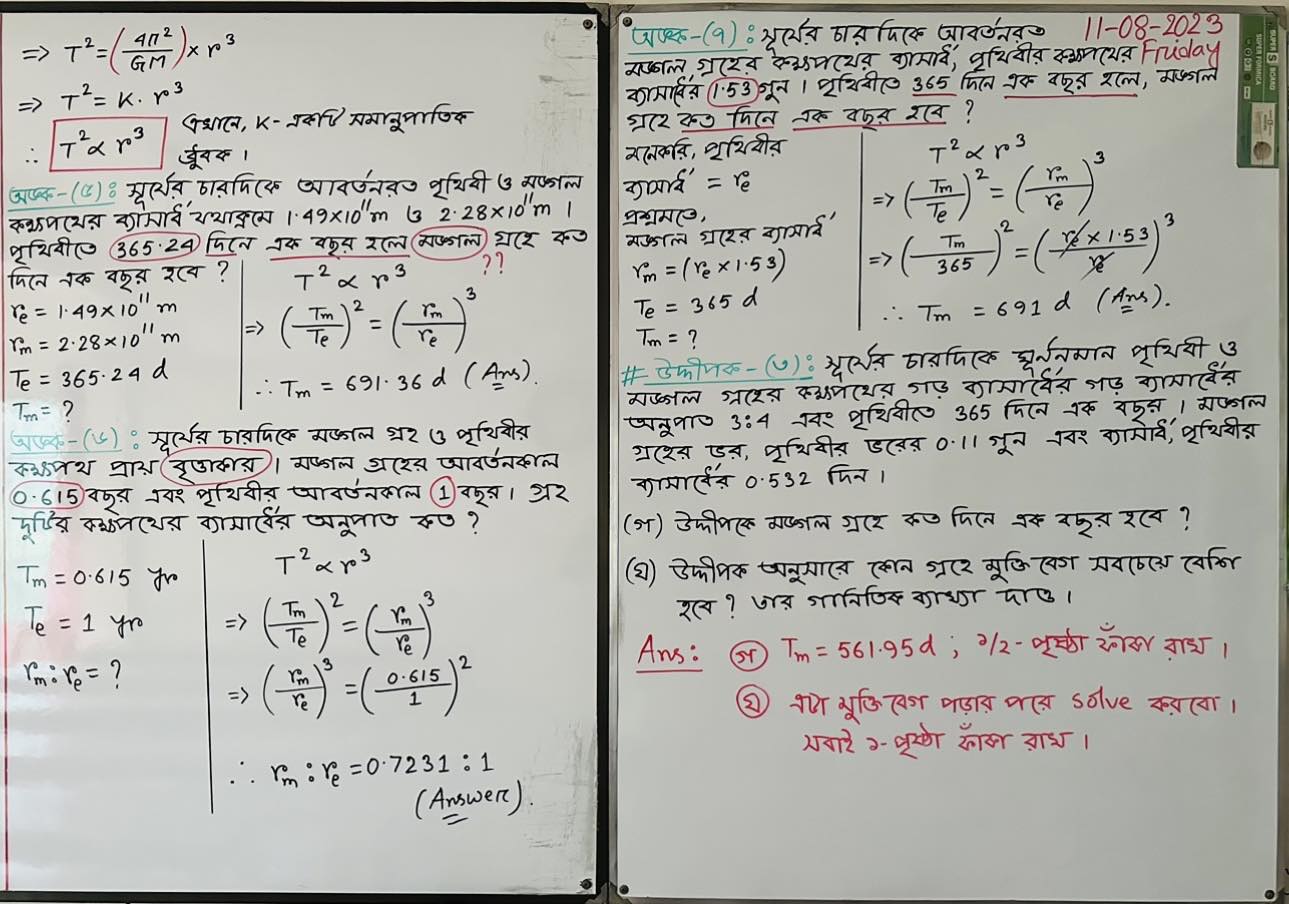 => T² = (4π²/GM) × r³
=> T² = K. r³
∴ T² ∝ r³
এখানে, K - একটি সমানুপাতিক
ধ্রুবক।
অঙ্ক-(৫): সূর্যের চারদিকে আবর্তনরত পৃথিবী ও মঙ্গল
কক্ষপথের ব্যাসার্ধ যথাক্রমে 1.49×10¹¹m ও 2.28×10¹¹m।
পৃথিবীতে 365.24 দিনে এক বছর হলে মঙ্গল গ্রহে কত
দিনে এক বছর হবে?
??
rₑ = 1.49×10¹¹ m
rₘ = 2.28×10¹¹ m
Tₑ = 365.24 d
Tₘ = ?
T² ∝ r³
=> (Tₘ/Tₑ)² = (rₘ/rₑ)³
∴ Tₘ = 691.36 d (Ans).
অঙ্ক-(৬): সূর্যের চারদিকে মঙ্গল গ্রহ ও পৃথিবীর
কক্ষপথ প্রায় বৃত্তাকার। মঙ্গল গ্রহের আবর্তনকাল
0.615 বছর এবং পৃথিবীর আবর্তনকাল 1 বছর। গ্রহ
দুটির কক্ষপথের ব্যাসার্ধের অনুপাত কত?
Tₘ = 0.615 yr
Tₑ = 1 yr
rₘ : rₑ = ?
T² ∝ r³
=> (Tₘ/Tₑ)² = (rₘ/rₑ)³
=> (rₘ/rₑ)³ = (0.615/1)²
∴ rₘ : rₑ = 0.7231 : 1
(Answer).
11-08-2023
Friday
অঙ্ক-(৭): সূর্যের চারদিকে আবর্তনরত
মঙ্গল গ্রহের কক্ষপথের ব্যাসার্ধ, পৃথিবীর কক্ষপথের
ব্যাসার্ধের 1.53 গুন। পৃথিবীতে 365 দিনে এক বছর হলে, মঙ্গল
গ্রহে কত দিনে এক বছর হবে?
মনেকরি, পৃথিবীর
ব্যাসার্ধ = rₑ
প্রশ্নমতে,
মঙ্গল গ্রহের ব্যাসার্ধ
rₘ = (rₑ × 1.53)
Tₑ = 365 d
Tₘ = ?
T² ∝ r³
=> (Tₘ/Tₑ)² = (rₘ/rₑ)³
=> (Tₘ/365)² = (rₑ × 1.53/rₑ)³
∴ Tₘ = 691 d (Ans).
# উদ্দীপক-(৩): সূর্যের চারদিকে ঘূর্ননমান পৃথিবী ও
মঙ্গল গ্রহের কক্ষপথের গড় ব্যাসার্ধের গড় ব্যাসার্ধের
অনুপাত 3:4 এবং পৃথিবীতে 365 দিনে এক বছর। মঙ্গল
গ্রহের ভর, পৃথিবীর ভরের 0.11 গুন এবং ব্যাসার্ধ, পৃথিবীর
ব্যাসার্ধের 0.532 দিন।
(গ) উদ্দীপকে মঙ্গল গ্রহে কত দিনে এক বছর হবে?
(ঘ) উদ্দীপক অনুসারে কোন গ্রহে মুক্তি বেগ সবচেয়ে বেশি
হবে? তার গানিতিক ব্যাখ্যা দাও।
Ans: (গ) Tₘ = 561.95d ; ১/২-পৃষ্ঠা ফাঁকা রাখ।
(ঘ) এটা মুক্তি বেগ পড়ার পরে solve করবো।
সবাই ১-পৃষ্ঠা ফাঁকা রাখ।